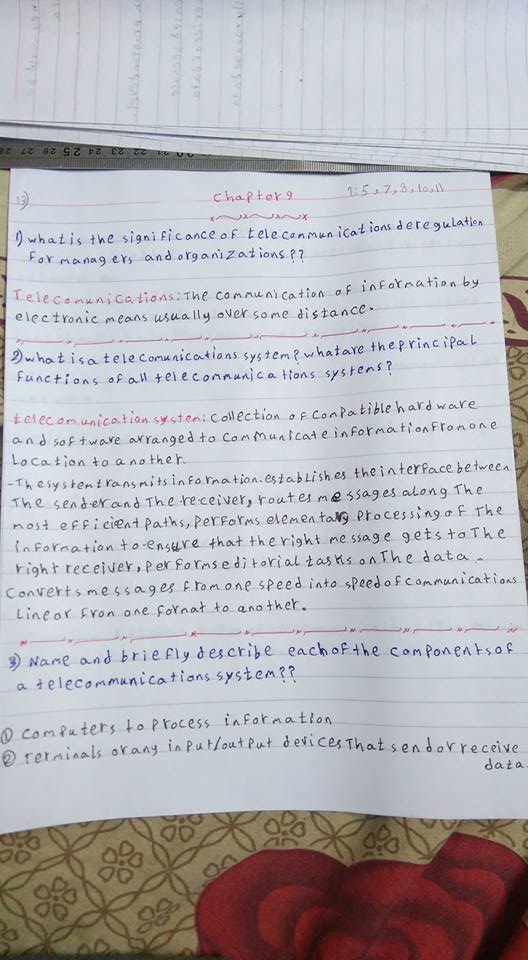 13)
Chapter 9
1:5,7,8,10,11
1) what is the significance of telecommunications deregulation
for managers and organizations??
Telecomunications: The communication of information by
electronic means usually over some distance.
2) what is a telecomunications system? what are the principal
functions of all telecommunications systems?
telecomunication system: Collection of Conpatible hardware
and software arranged to communicate information from one
Location to another.
- The system transmits information. establishes the interface between
The sender and The receiver, routes messages along The
most efficient paths, performs elementary Processing of The
information to ensure that the right message gets to The
right receiver, performs editorial tasks on The data -
Converts messages from one speed into speed of communications
Line or from one format to another.
3) Name and briefly describe each of the components of
a telecommunications system??
① Computers to process information
② Terminals or any input/output devices That send or receive
data